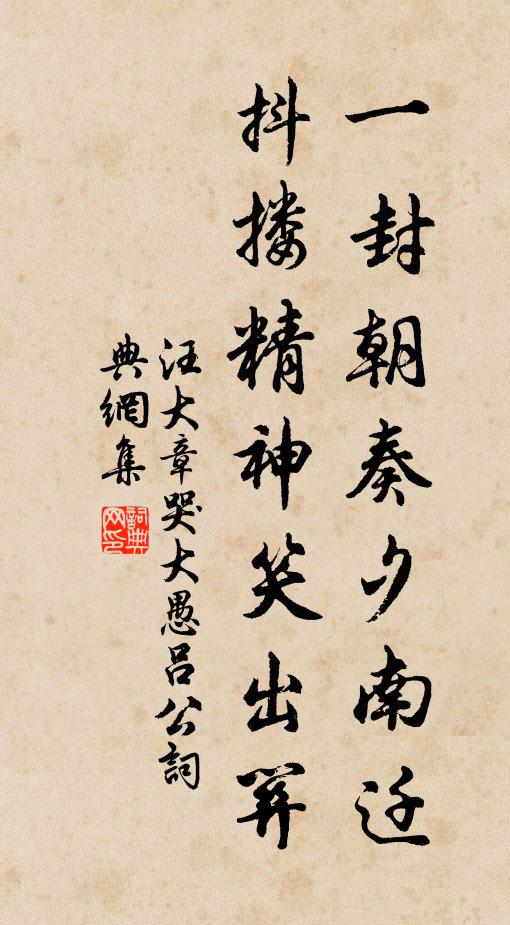 一封朝奏夕南迁
抖搂精神笑出关
汪大章哭大愚吕公詞
典網集
詞典
网印